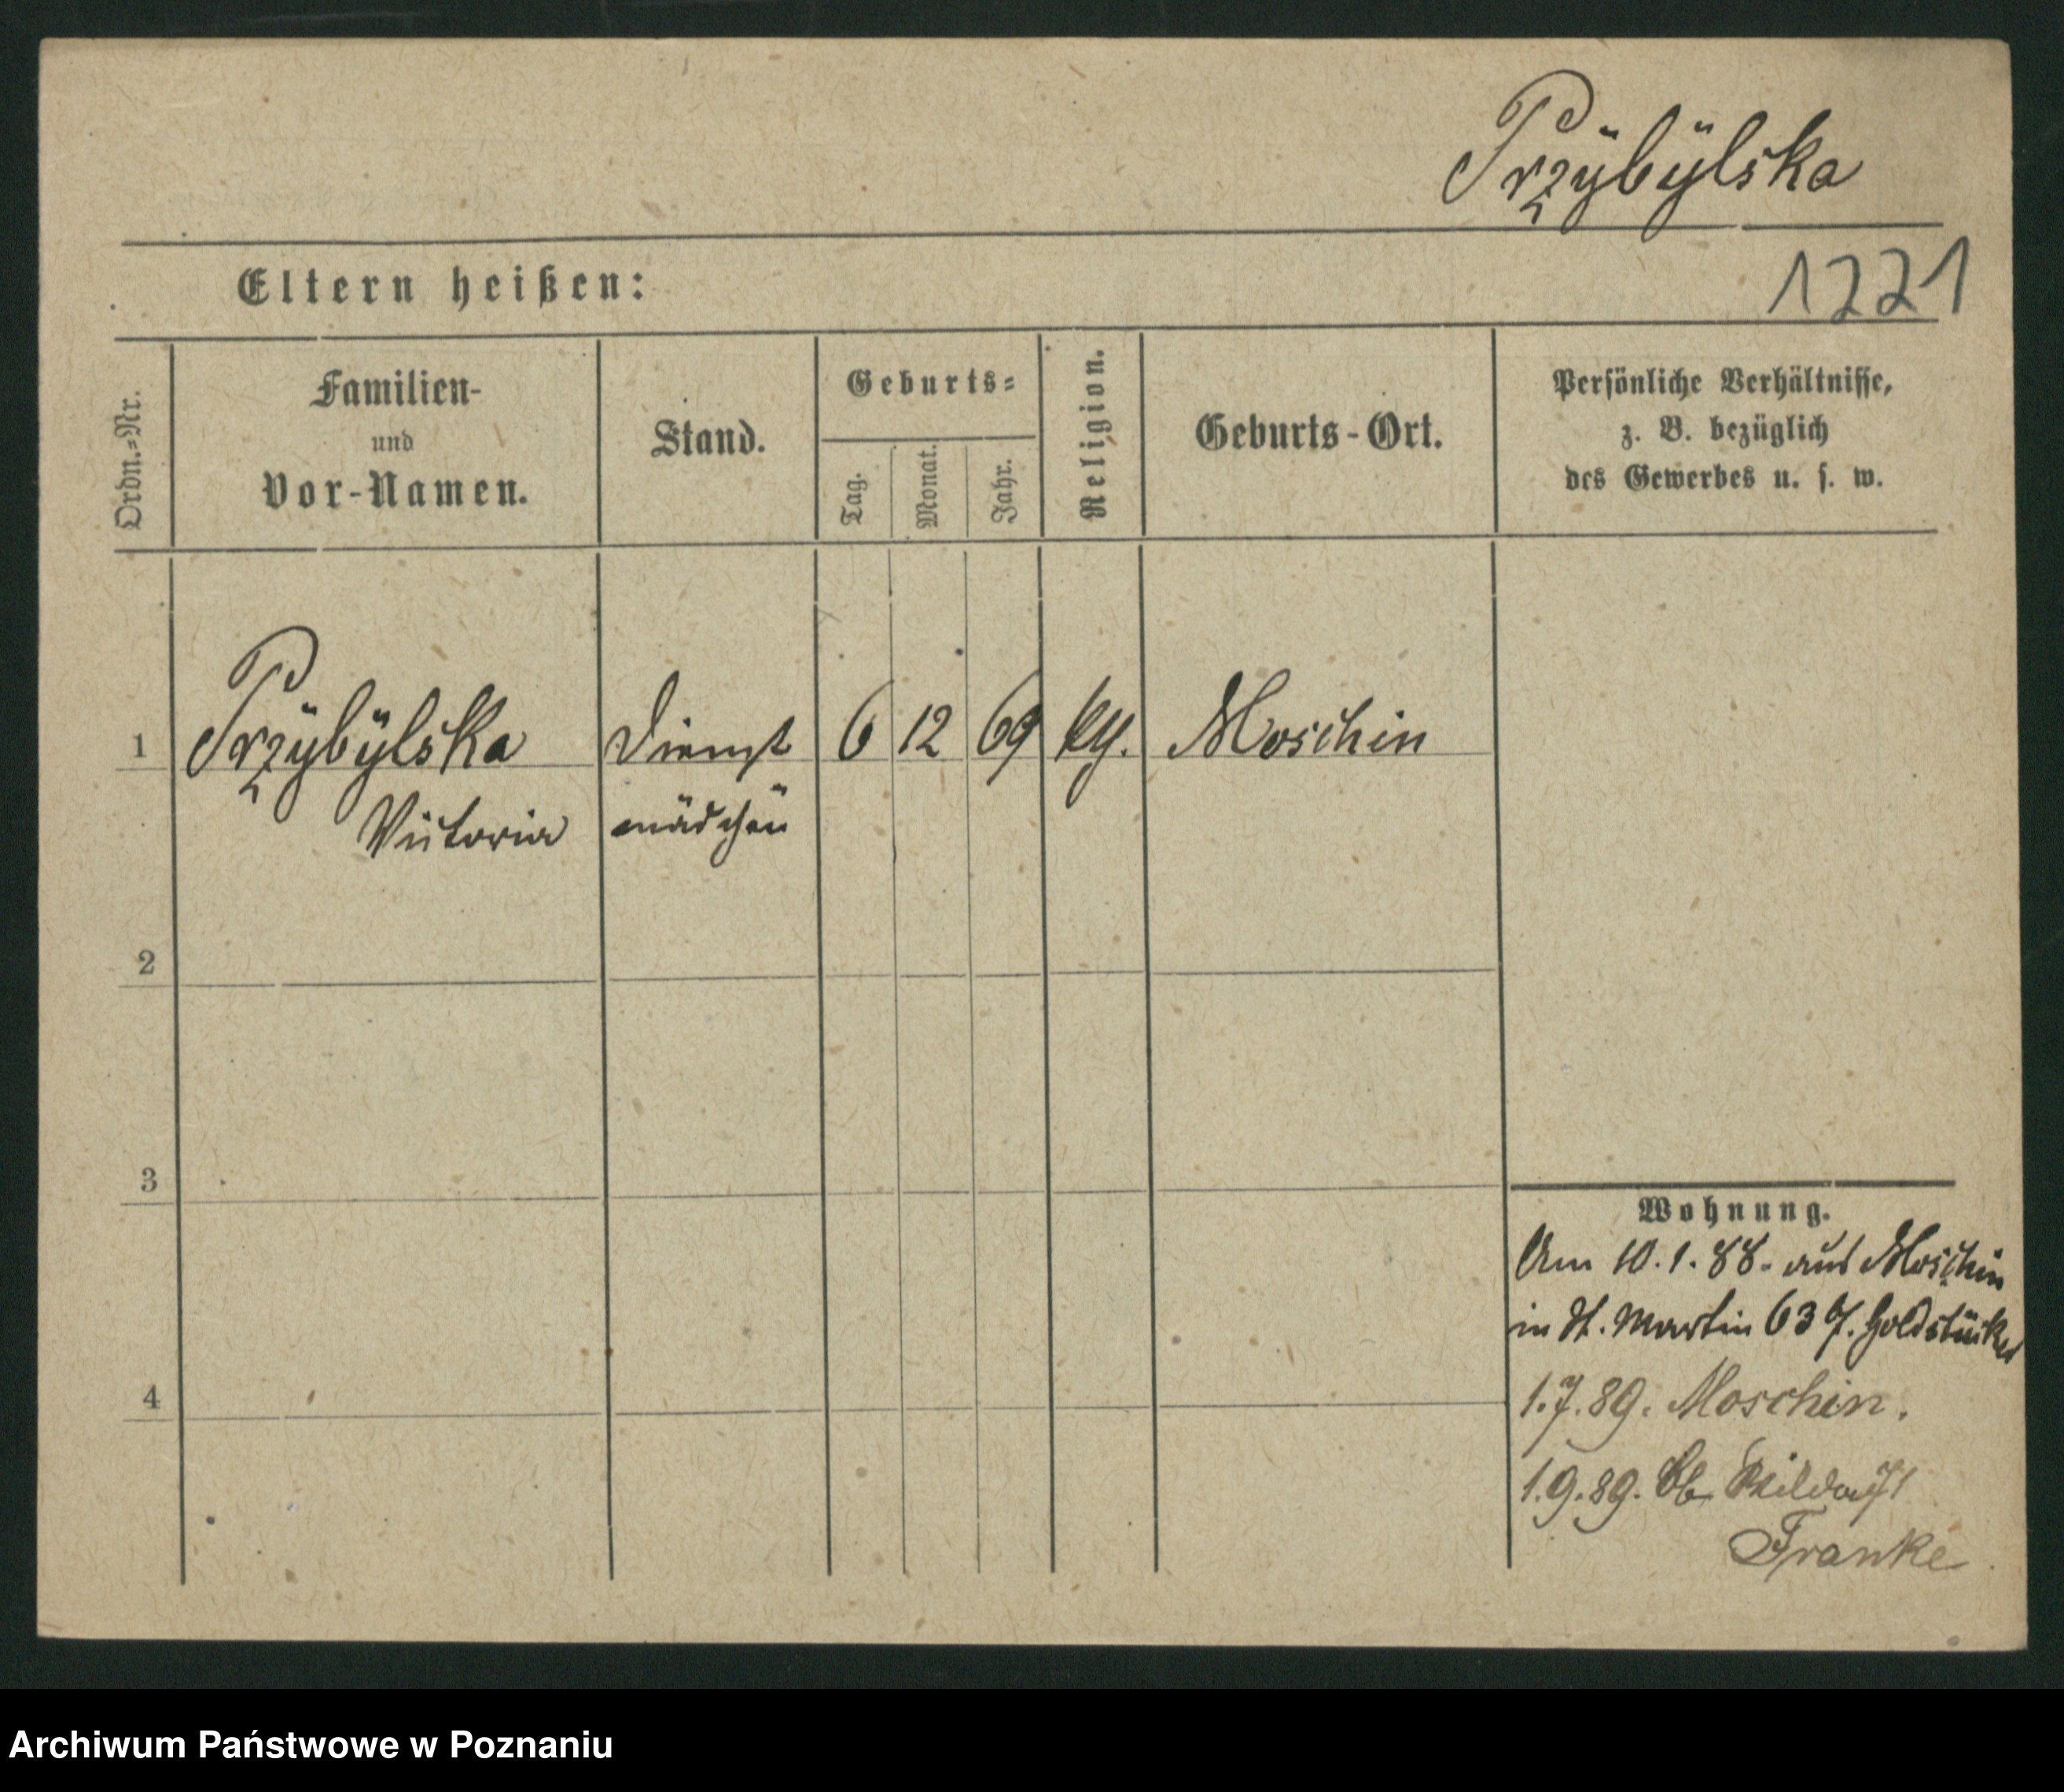 Przÿbÿlska
1221
Eltern heißen:
Ordn.=Nr.
Familien-
und
Vor-Namen.
Stand.
Geburts=
Tag.
Monat.
Jahr.
Religion.
Geburts-Ort.
Persönliche Verhältnisse,
z. B. bezüglich
des Gewerbes u. s. w.
1 Przÿbÿlska Dienst 6 12 69 Moschin
Victoria mädchen
2
3
4
Wohnung.
Am 10.1.88. aus Moschin
in St. Martin 63
1.7.89. Moschin.
1.9.89.
Franke
Archiwum Państwowe w Poznaniu